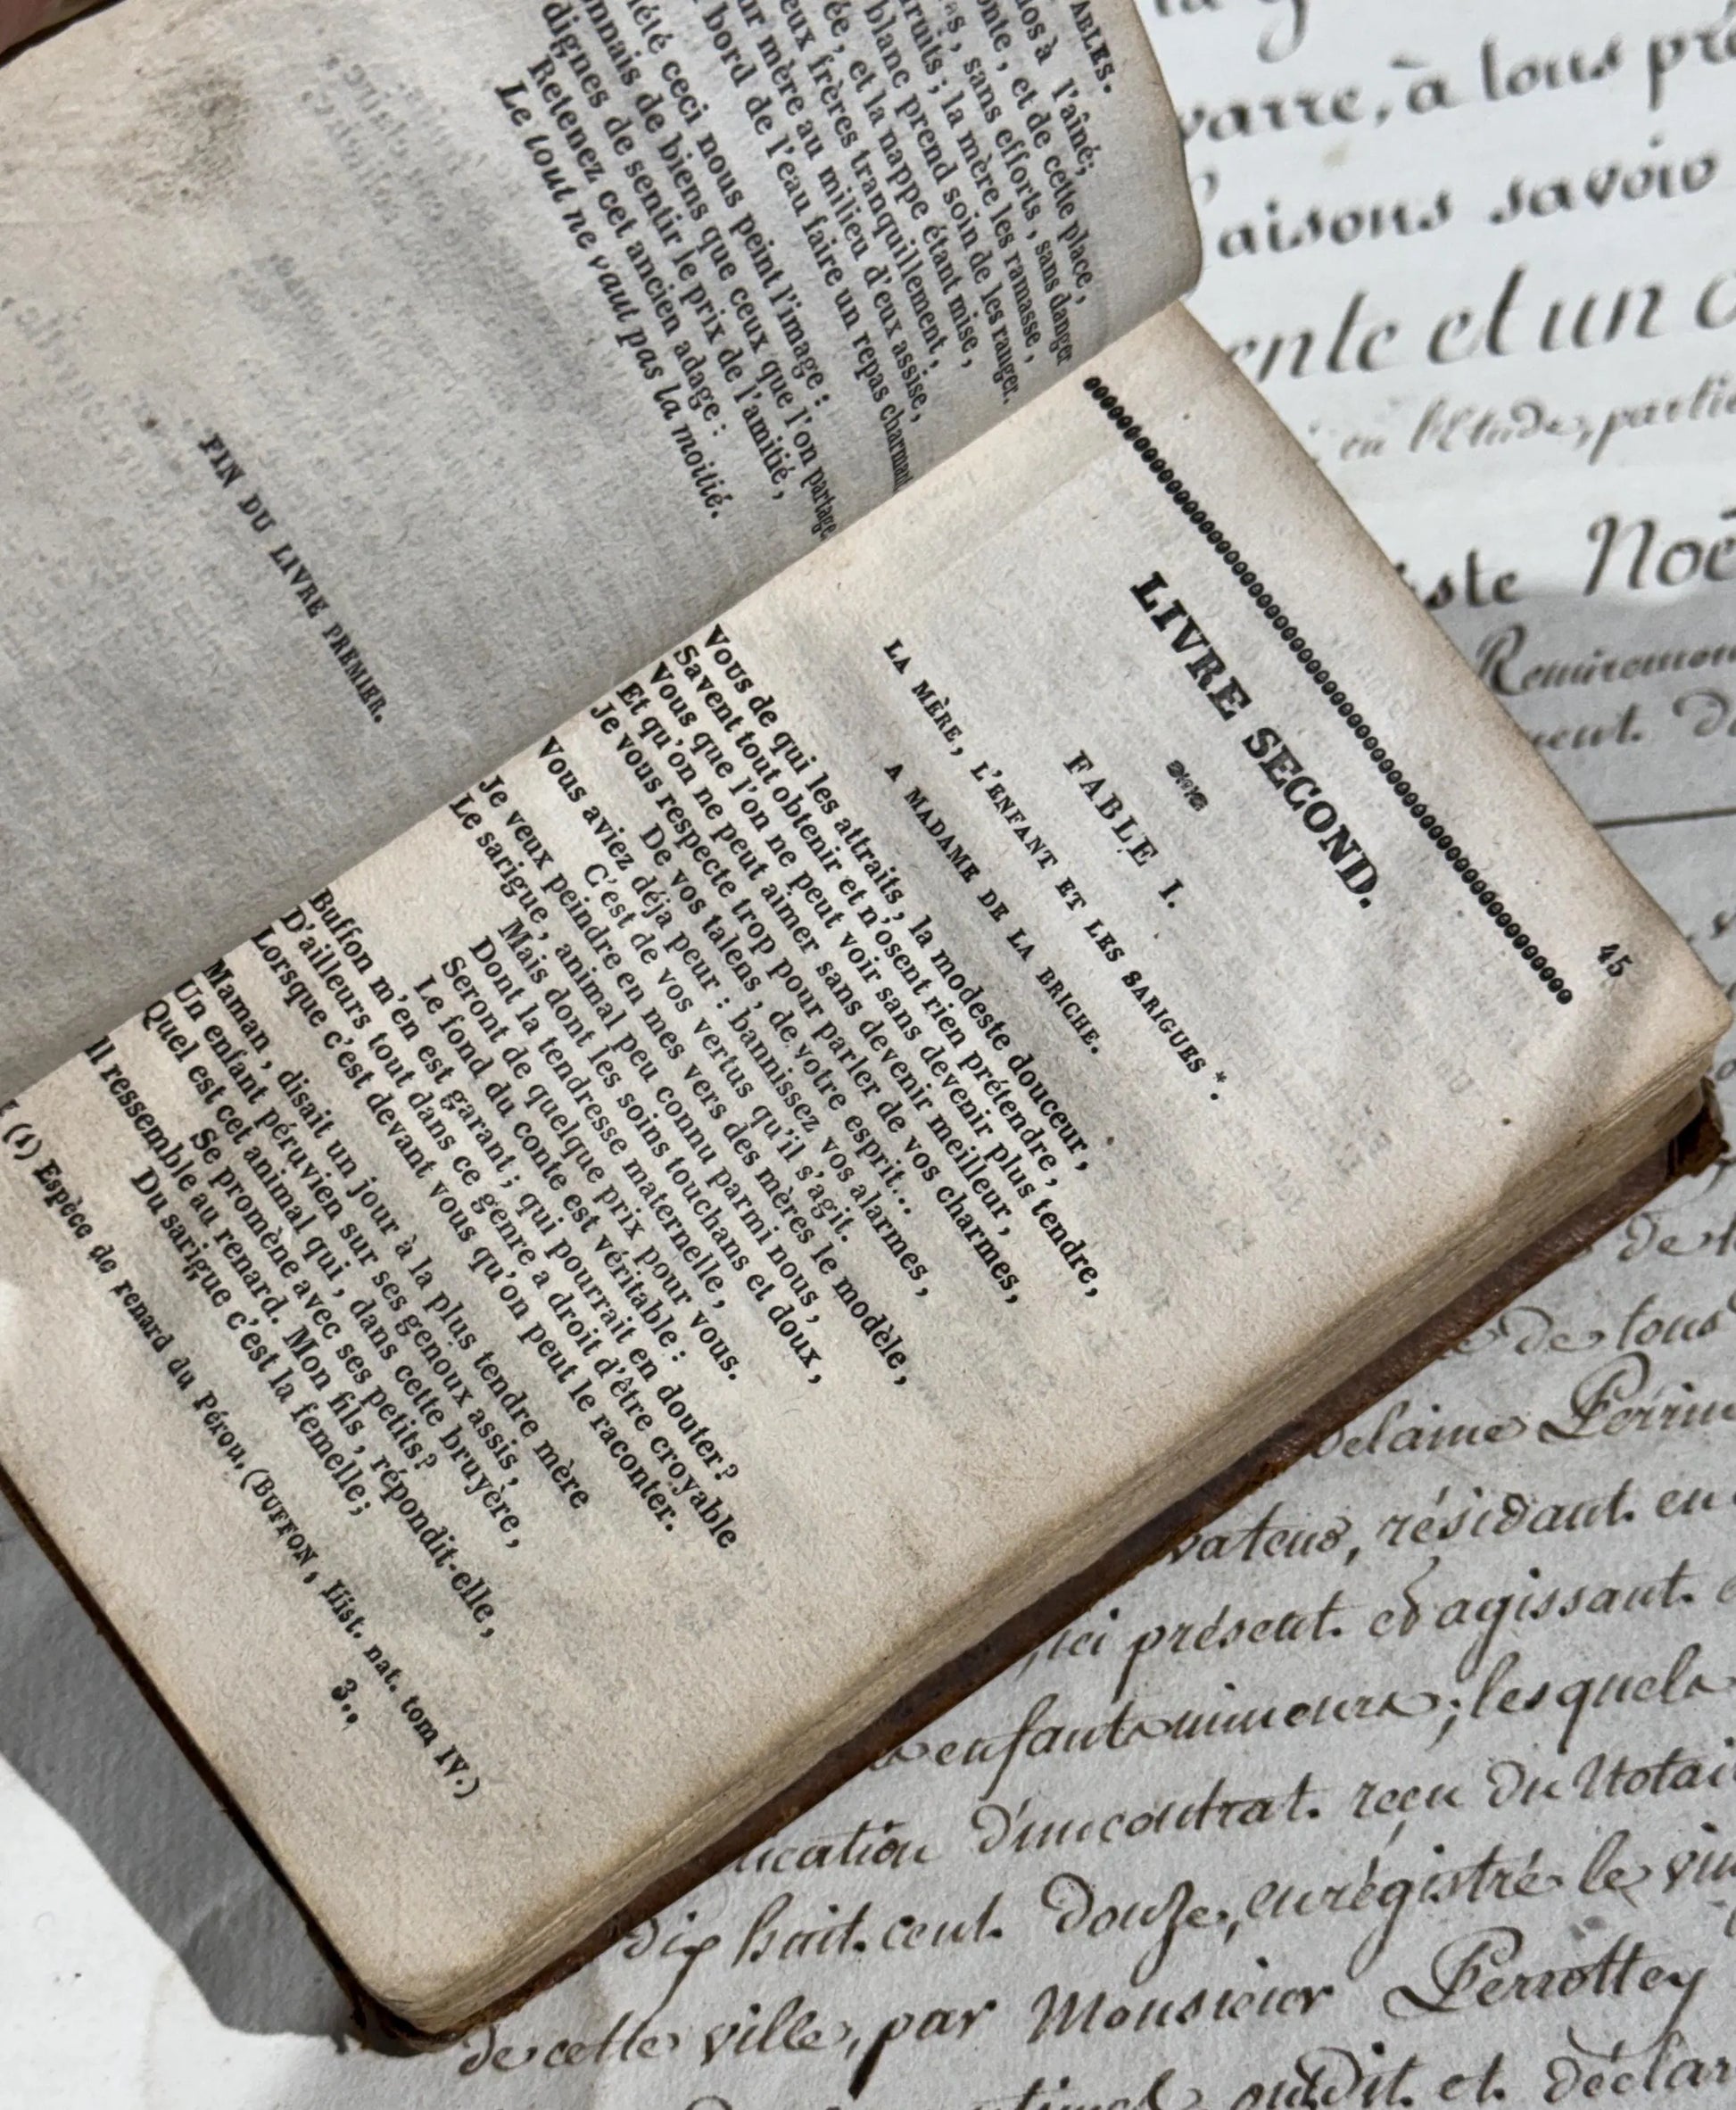 ABLES.
l'aîné;
onte, et de cette place,
as, sans efforts, sans danger
ruits; la mère les ramasse,
blanc prend soin de les ranger.
ée, et la nappe étant mise,
eux frères tranquillement,
ur mère au milieu d'eux assise,
bord de l'eau faire un repas charmant
ceci nous peint l'image:
onnais de biens que ceux que l'on partage
dignes de sentir le prix de l'amitié,
Retenez cet ancien adage:
Le tout ne vaut pas la moitié.
FIN DU LIVRE PREMIER.
45
LIVRE SECOND.
FABLE I.
LA MÈRE, L'ENFANT ET LES SARIGUES *.
A MADAME DE LA BRICHE.
Vous de qui les attraits, la modeste douceur,
Savent tout obtenir et n'osent rien prétendre,
Vous que l'on ne peut voir sans devenir plus tendre,
Et qu'on ne peut aimer sans devenir meilleur,
Je vous respecte trop pour parler de vos charmes,
De vos talens, de votre esprit...
Vous aviez déja peur : bannissez vos alarmes,
C'est de vos vertus qu'il s'agit.
Je veux peindre en mes vers des mères le modèle,
Le sarigue, animal peu connu parmi nous,
Mais dont les soins touchans et doux,
Dont la tendresse maternelle,
Seront de quelque prix pour vous.
Le fond du conte est véritable :
Buffon m'en est garant; qui pourrait en douter?
D'ailleurs tout dans ce genre a droit d'être croyable
Lorsque c'est devant vous qu'on peut le raconter.
Maman, disait un jour à la plus tendre mère
Un enfant péruvien sur ses genoux assis,
Quel est cet animal qui, dans cette bruyère,
Se promène avec ses petits?
Il ressemble au renard. Mon fils, répondit-elle,
Du sarigue c'est la femelle;
(1) Espèce de renard du Pérou. (BUFFON, Hist. nat. tom IV.)
3..
varre, à tous pré
aisons savoir
ente et un
en l'Etude, partie
iste Noë
Remiremon
de tous
delaine Perrin
vateur, résidant en
ici présent et agissant
enfants mineurs; lesquels
ication d'un contrat reçu du Notai
dix huit cent douze, enrégistré le vin
de cette ville, par Monsieur Perrottey
ont dit et déclar